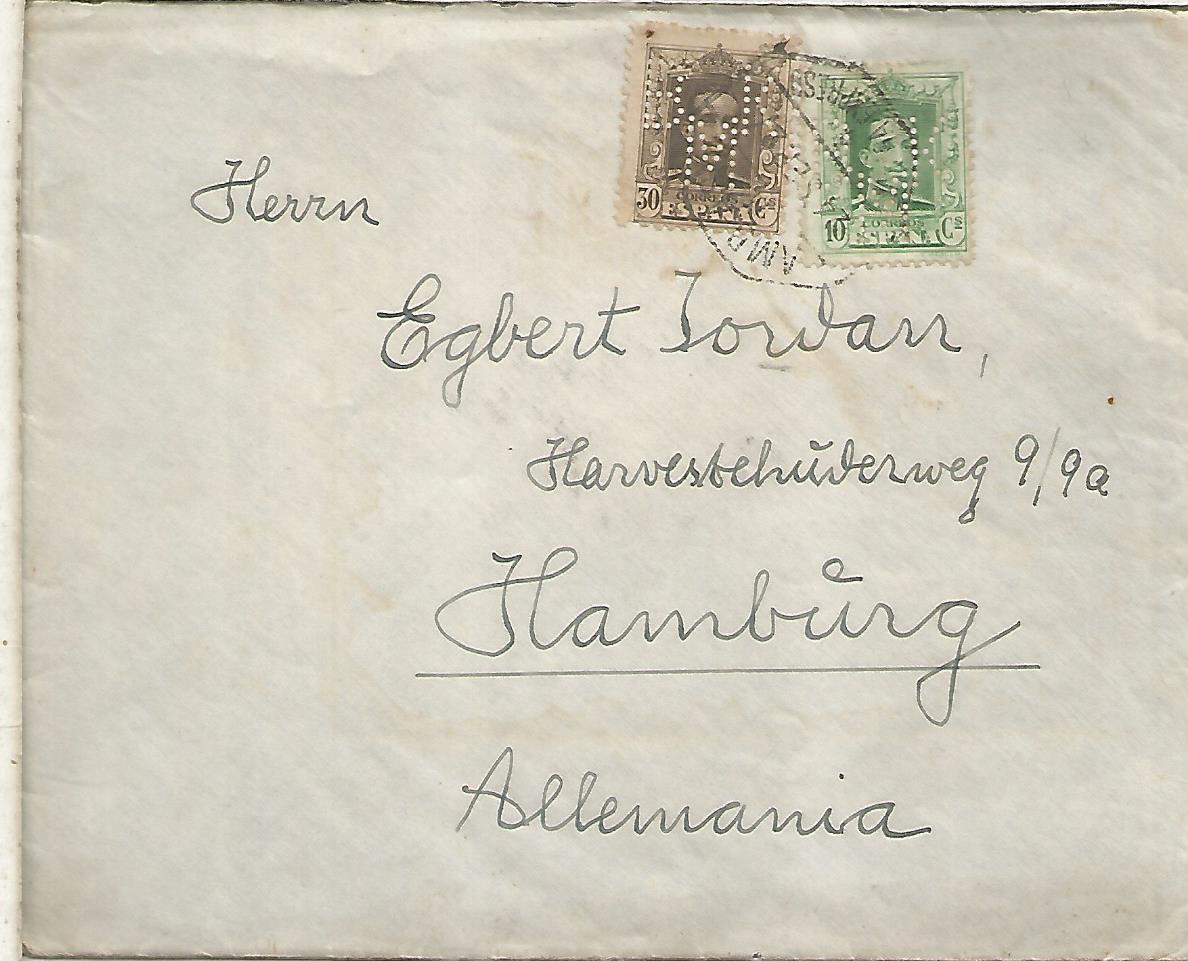 30 CORREOS Cs
ESPAÑA
10 CORREOS Cs
ESPAÑA
Herrn
Egbert Jordan,
Harvestehuderweg 9/9a
Hamburg
Allemania